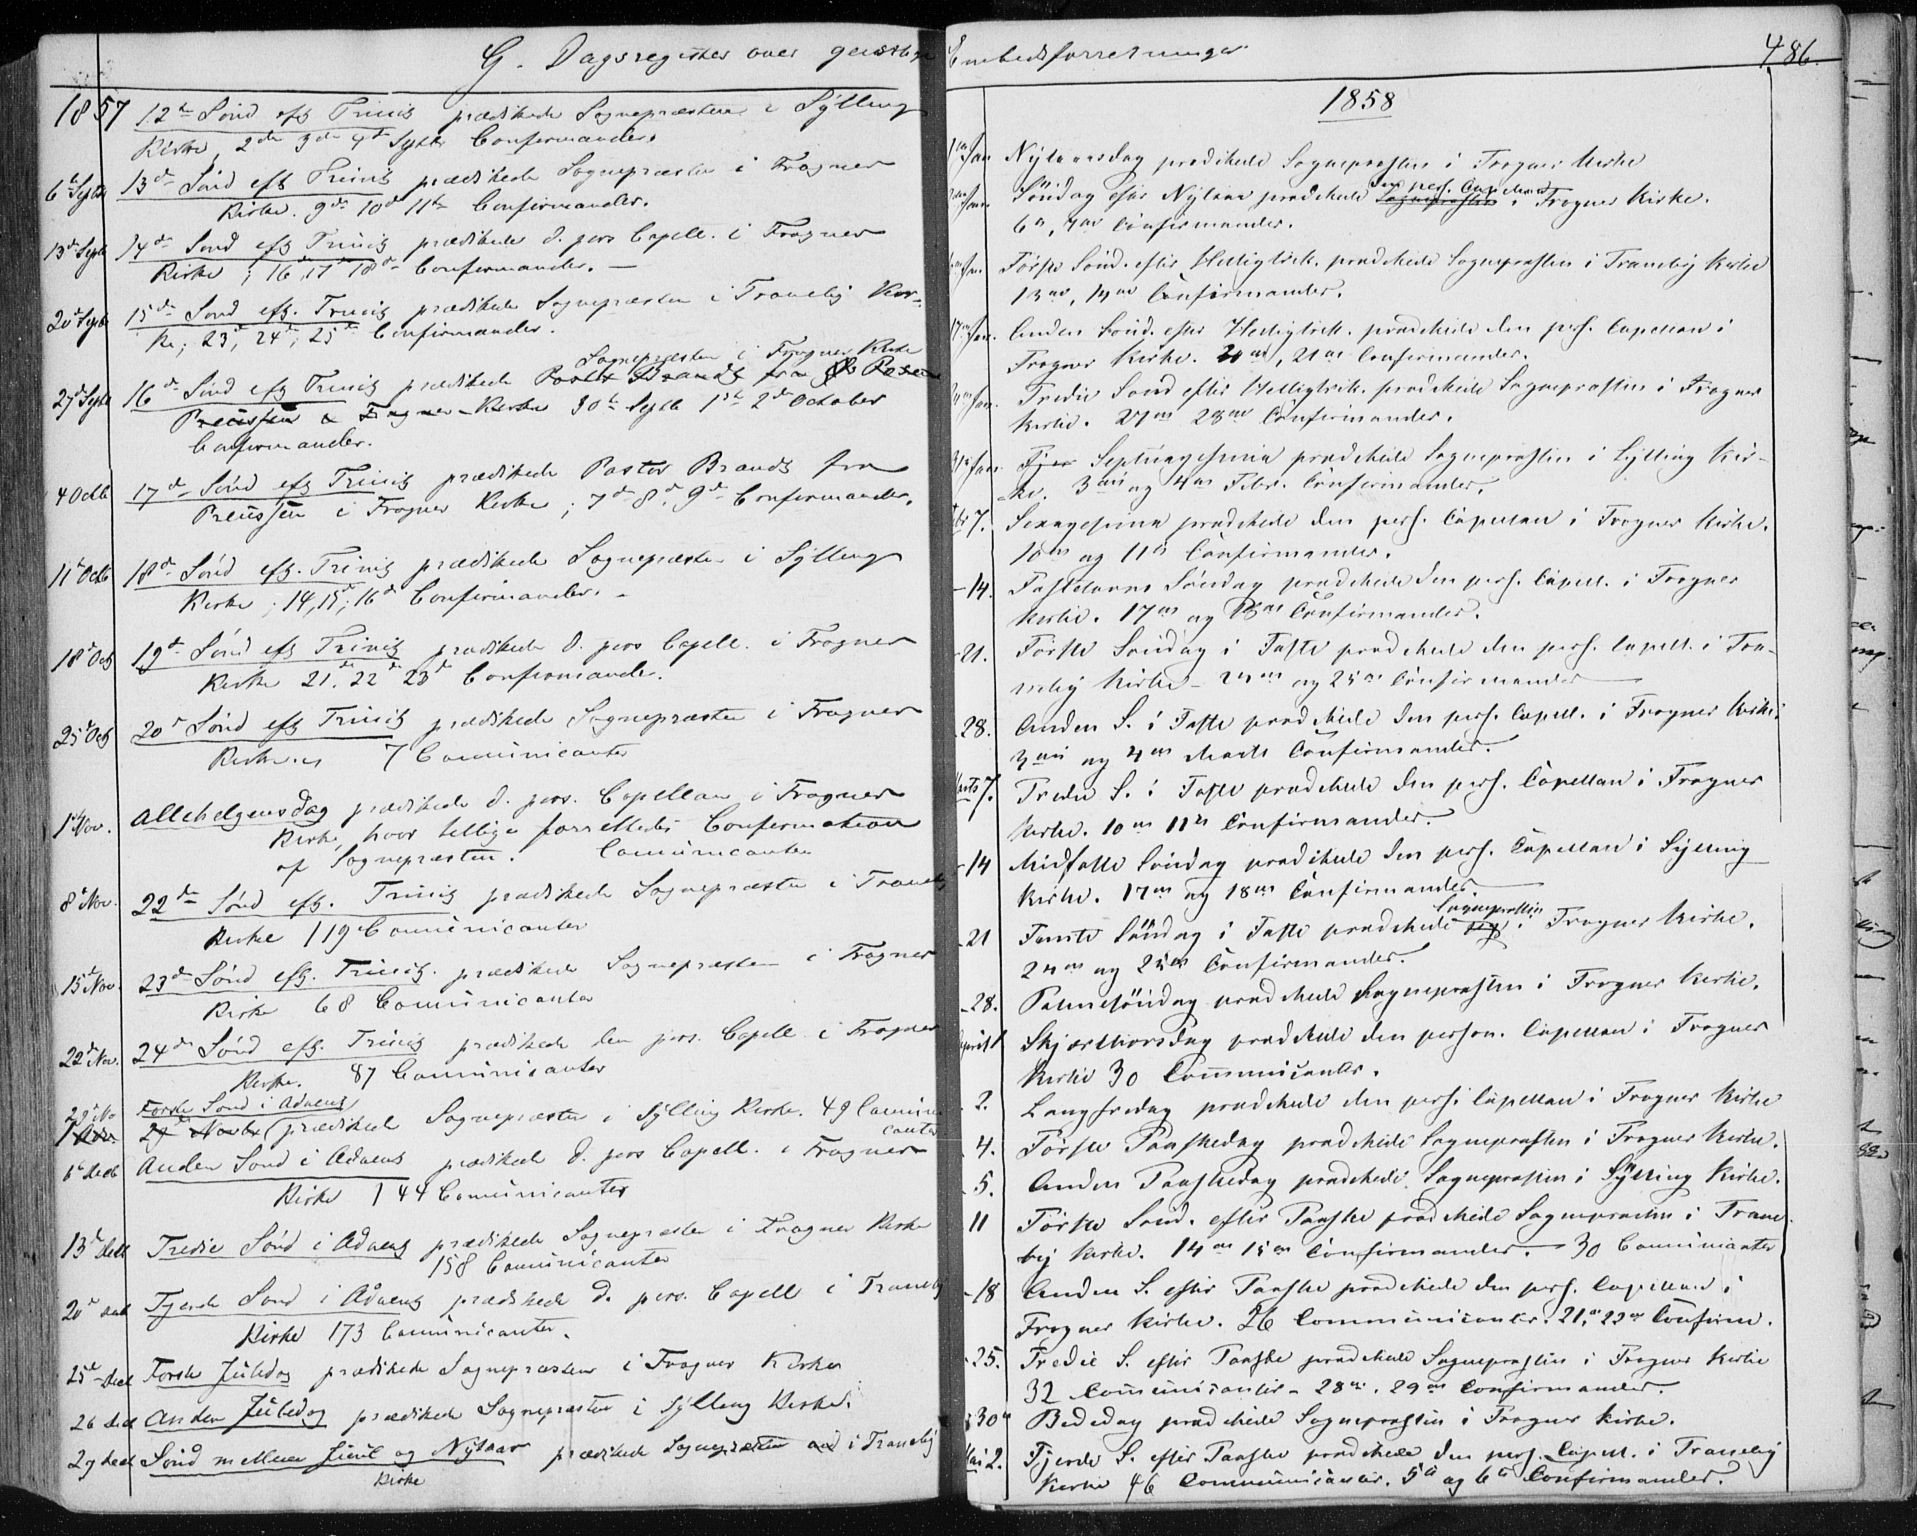 G. Dagsregister over geistlige Embedsforretninger
486.
1857 12te Sönd eft Trinit prædikede Sognepræsten i Sylling
Kirke, 2de 3de 4de Sept Confirmander.
6te Sept 13de Sönd eft Trinit prædikede Sognepræsten i Frogner
Kirke. 9de 10de 11te Confirmander.
13de Sept 14de Sönd eft Trinit prædikede d. pers Capell. i Frogner
Kirke; 16, 17de 18de Confirmander. —
20de Sept 15de Sönd eft. Trinit prædikede Sognepræsten i Tranebÿ Kir-
ke; 23, 24de, 25de Confirmander.
Sognepræsten i Frogner Kirke
27de Sept 16de Sönd eft Trinit prædikede Pastor Brandt fra
Preussen i Frogner Kirke 30te Septb 1ste 2den October
Confirmander.
4 Octb 17de Sönd eft Trinit prædikede Pastor Brandt fra
Preussen i Frogner Kirke; 7de 8de 9de Confirmander.
11te Octb 18de Sönd eft. Trinit prædikede Sognepræsten i Sylling
Kirke; 14, 15de, 16de Confirmander. -
18de Oct 19de Sönd eft Trinit prædikede d. pers Capell. i Frogner
Kirke 21. 22de 23de Confirmander.
25de Oct 20de Sönd eft Trinit prædikede Sognepræsten i Frogner
Kirke. 7 Comunicanter
1ste Nov. Allehelgensdag prædikede d. pers. Capellan i Frogner
Kirke, hvor tillige forrettedes Confirmation
af Sognepræsten. Comunicanter
8de Nov. 22de Sönd eft. Trinit prædikede Sognepræsten i Tranebÿ
Kirke 119 Comunicanter
15de Nov. 23de Sönd eft. Trinit. prædikede Sognepræsten i Frogner
Kirke 68 Comunicanter
22de Nov. 24de Sönd eft. Trinit prædikede den pers. Capell i Frogner
Kirke. 87 Comunicanter
Förste Sönd i Advent
29de Nov 29de Novbr prædikede Sognepræsten i Sylling Kirke. 49 Comuni
canter
6te Decb Anden Sönd i Advent prædikede d. pers Capell. i Frogner
Kirke 144 Comunicanter
13de Decb Tredie Sönd i Advent prædikede Sognepræsten i Frogner Kirke
158 Comunicanter
20de Decb Fjerde Sönd i Advent prædikede d. pers. Capell i Tranebÿ
Kirke 173 Comunicanter.
25de Decb Förste Juledag prædikede Sognepræsten i Frogner Kirke
26 Decb Anden Juledag prædikede Sognepræsten i Sylling Kirke.
29 Decb Sönd mellem Juul og Nÿtaar prædikede Sognepræsten i Tranebÿ
Kirke
1858
1ste Jan Nÿtaarsdag prædikede Sognepræsten i Frogner Kirke
den pers. Capellan
Jan. Söndag efter Nÿtaar prædikede Sognepræsten i Frogner Kirke.
6te, 7de Confirmander.
Jan. Förste Sönd. efter Helligtrek. prædikede Sognepræsten i Tranebÿ Kirke
13de, 14de Confirmander.
17de Jan. Anden Sönd. efter Helligtrek. prædikede den pers. Capellan i
Frogner Kirke. 20de, 21de Confirmander.
Jan. Tredie Sönd efter Helligtrek. prædikede Sognepræsten i Frogner
Kirke. 27de 28de Confirmander.
31te Jan. Septuagesima prædikede Sognepræsten i Sÿlling Kir-
ke. 3die og 4de Febr. Confirmander.
Febr 7. Sexagesima prædikede den pers. Capellan i Frogner Kirke.
10de og 11te Confirmander.
- 14. Fastelavns Söndag prædikede den pers. Capell. i Frogner
Kirke. 17de og 18de Confirmander.
- 21. Förste Söndag i Faste prædikede den pers. Capell. i Tra-
nebÿ Kirke - 24de og 25de Confirmander
28. Anden S. i Faste prædikede den pers. Capell. i Frogner Kirke
3die og 4de Marts Confirmander.
Marts 7. Tredie S. i Faste prædikede den pers. Capellan i Frogner
Kirke. 10de 11te Confirmander.
- 14 Midfaste Söndag prædikede den pers. Capellan i Sÿlling
Kirke. 17de og 18de Confirmander.
Sognepræsten
- 21 Femte Söndag i Faste prædikede i Frogner Kirke.
24de og 25de Confirmander.
- 28. Palmesöndag prædikede Sognepræsten i Frogner Kirke.
April 1 Skjærthorsdag prædikede den person. Capellan i Frogner
Kirke 30 Communicanter.
2. Langfredag prædikede den pers. Capellan i Frogner Kirke
4. Förste Paaskedag prædikede Sognepræsten i Frogner Kirke.
5. Anden Paaskedag prædikede Sognepræsten i Sÿlling Kirke.
11 Förste Sönd. efter Paaske prædikede Sognepræsten i Trane
bÿ Kirke. 14de 15de Confirmander. — 30 Comunicanter
- 18 Anden S. efter Paaske prædikede den pers. Capellan i
Frogner Kirke. 26 Communicanter. 21, 22de Confirm.
- 25. Tredie S. efter Paaske prædikede Sognepræsten i Frogner Kirke
32 Communicanter - 28de, 29de Confirmander.
30 Bededag prædikede Sognepræsten i Frogner Kirke.
Mai 2. Fjerde S. efter Paaske prædikede den pers. Capell. i Tranebÿ
Kirke 46 Communicanter. 5te og 6te Confirmander.